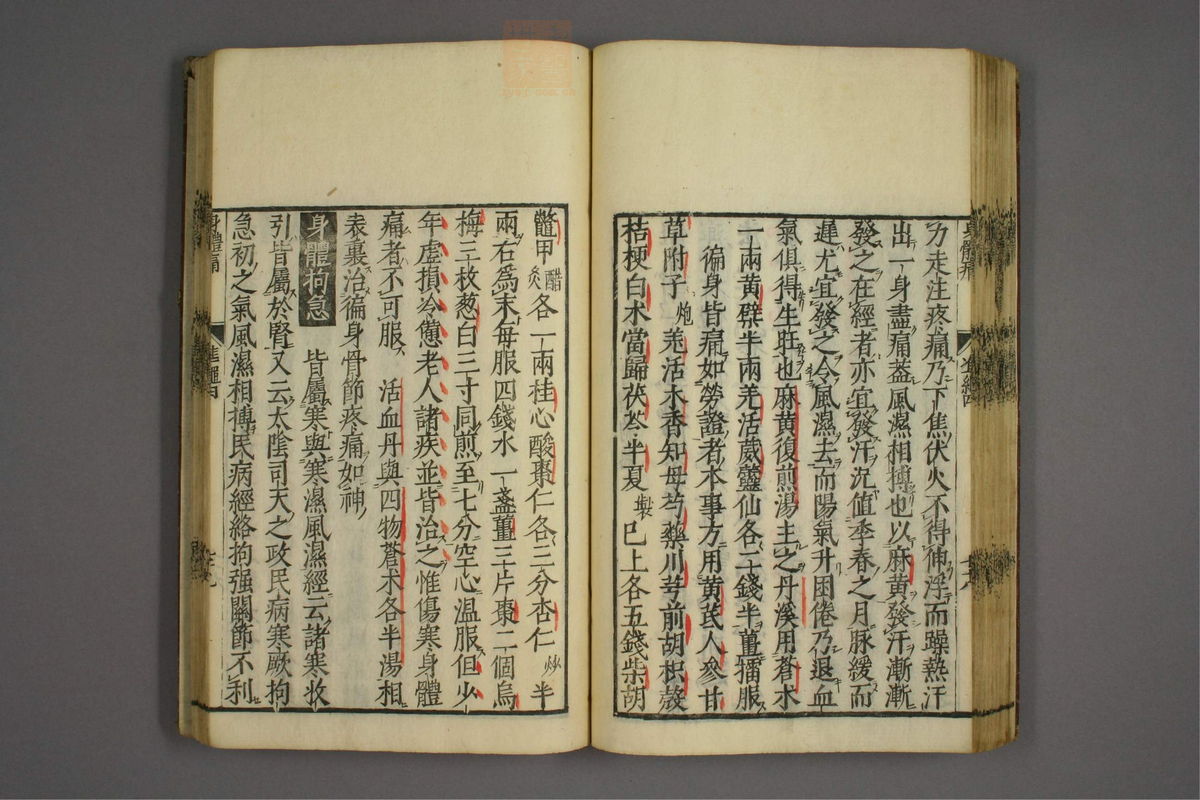 力走注疼痛乃下焦伏火不得伸浮而躁熱汗
出一身盡痛蓋風濕相搏也以麻黄發汗漸漸
發之在經者亦宜發汗况值季春之月脉緩而
遲尤宜發之令風濕去而陽氣升困倦乃退血
氣俱得生旺也麻黄復煎湯主之丹溪用蒼术
一兩黄蘗半兩羌活葳靈仙各二錢半薑擂服
徧身皆痛如勞證者本事方用黄芪人參甘
草附子炮羌活木香知母芍藥川芎前胡枳殼
桔梗白术當歸茯苓半夏製已上各五錢柴胡
鼈甲醋炙各一兩桂心酸棗仁各三分杏仁炒半
兩右爲末每服四錢水一盞薑三片棗二個烏
梅三枚葱白三寸同煎至七分空心温服但少
年虚損冷憊老人諸疾並皆治之惟傷寒身體
痛者不可服 活血丹與四物蒼术各半湯相
表裏治徧身骨節疼痛如神
身體拘急 皆屬寒與寒濕風濕經云諸寒收
引皆屬於腎又云太陰司天之政民病寒厥拘
急初之氣風濕相搏民病經絡拘强關節不利
身體痛